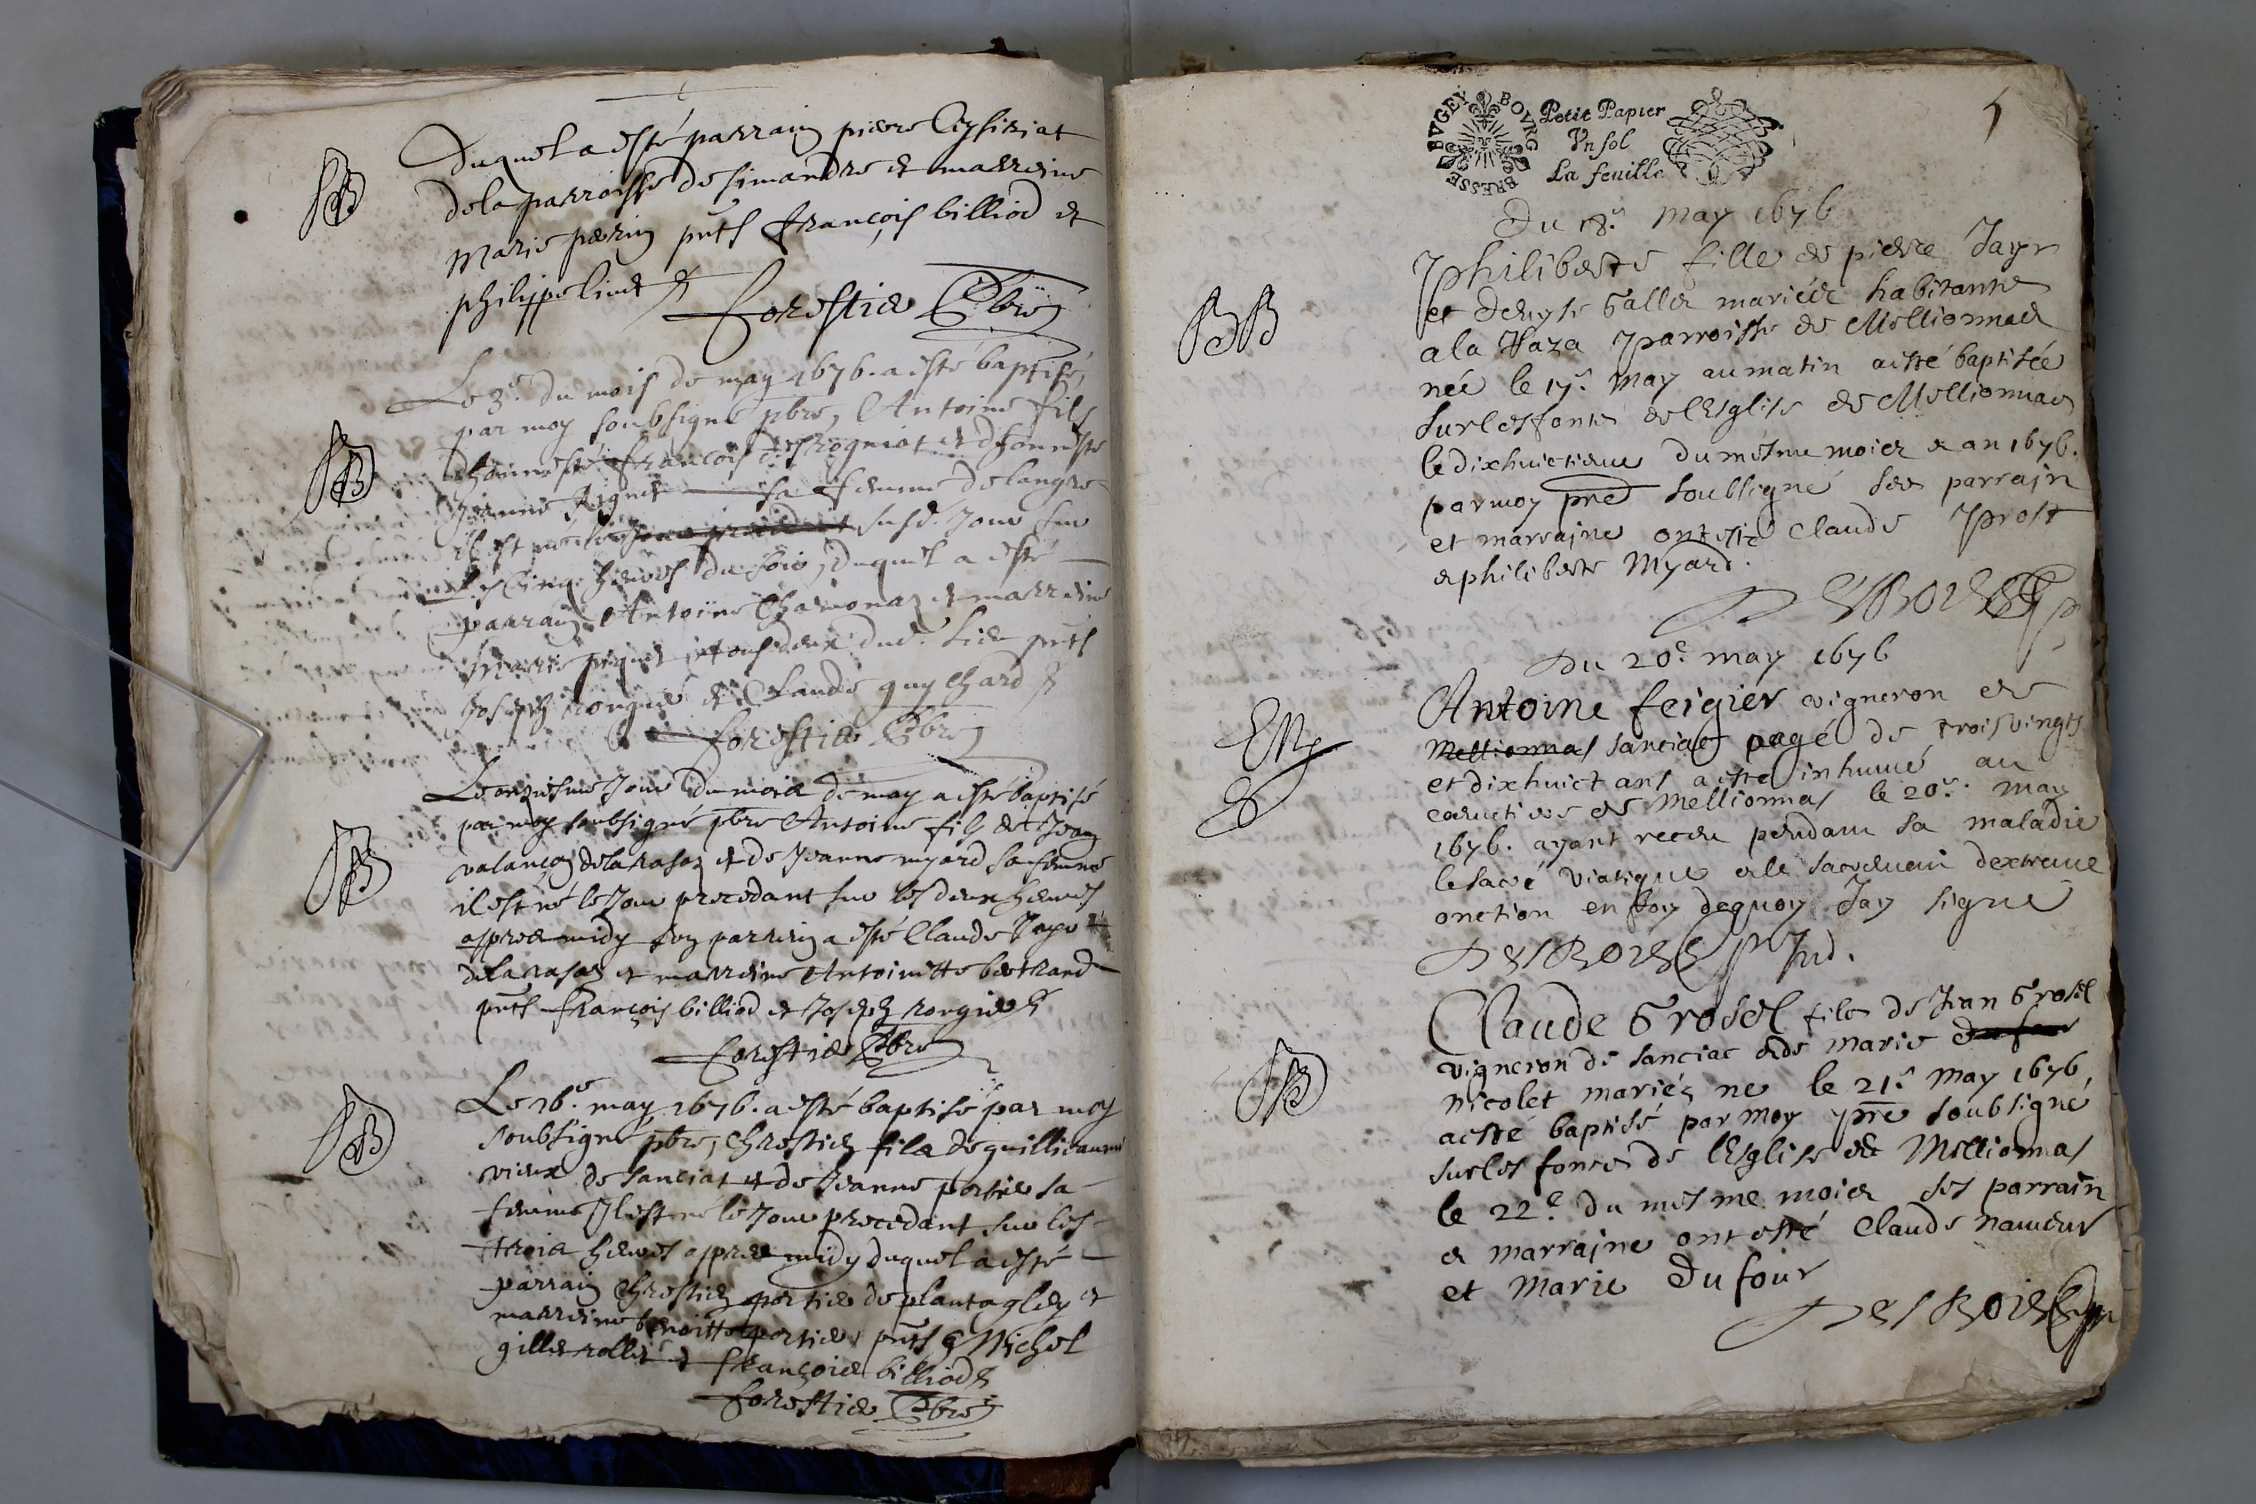 Duquel a esté parrain pierre
de la parroisse de simandre et marreine
Marie perin pnts françois billiod et
philippe
forestier pbre
Le 3e du mois de may 1676. a esté baptisé
par moy soubsigné pbre, Antoine fils
d'honneste françois et d'honneste
Jeanne sa femme de
il est né susd. Jour sur
les Cinq heures du soir, duquel a esté
parrain Antoine et marreine
tous deux dud. lieu pnts
Joseph et Claude guychard
forestier pbre
Le onziesme Jour du mois de may a esté baptisé
par moy soubsigné pbre Antoine fils de Jean
valançon de la rasaz et de Jeanne myard sa femme
il est né le Jour precedant sur les deux heures
appres midy son parrein a esté Claude
de la rasaz et marreine Antoinette bertrand
pnts françois billiod et Joseph
forestier pbre
Le 16e may 1676. a esté baptisé par moy
soubsigné pbre, Chrestien fils de guilleaume
vieux de sanciat et de Jeanne portier sa
femme Il est né le Jour precedant sur les
trois heures appres midy duquel a esté
parrain Chrestien portier de plantaglay et
marreine benoitte portier, pnts Michel
gillet et françois billiod
forestier pbre
BVGEY BOVRG BRESSE
Petit Papier
Vn sol
La feuille
Du 18e may 1676
Philiberte fille de pierre Jayr
et Denyse Gallet mariéz habitants
a la Raza parroisse de Mellionnas
née le 17e may au matin a esté baptisée
sur les fonts de l'Esglise de Mellionnas
le dixhuictieme du mesme mois et an 1676.
par moy pre soubsigné ses parrain
et marraine ont esté Claude Prost
et philiberte Myard.
DesBois
Du 20e may 1676
Antoine feigier vigneron de
Mellionnas sanciat agé de trois vingts
et dixhuict ans a esté inhumé au
cemetiere de Mellionnas le 20e may
1676. ayant receu pendant sa maladie
le sacré viatique et le sacrement d'extreme
onction en foy de quoy Jay signé
DesBois
Claude Grosel fils de Jean Grosel
vigneron de sanciat et de marie
nicolet mariéz né le 21e may 1676
a esté baptisé par moy pre soubsigné
sur les fonts de l'Esglise de Mellionnas
le 22e du mesme mois ses parrain
et marraine ont esté Claude
et Marie Du four
DesBois